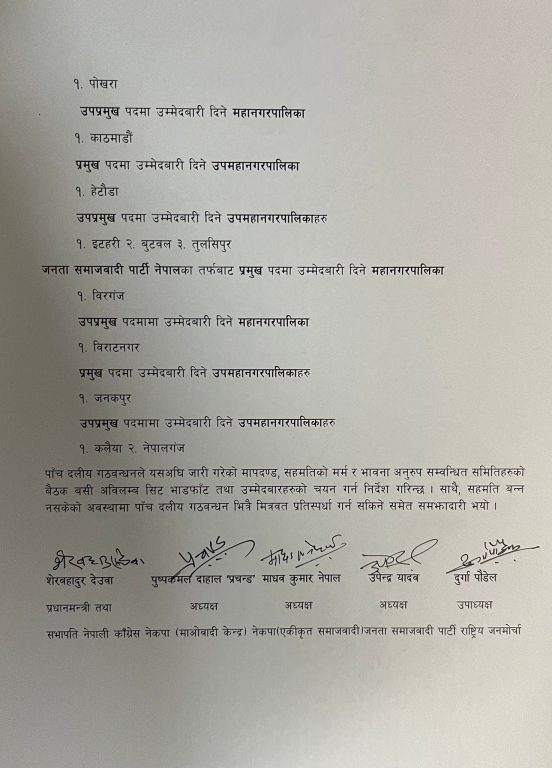 १. पोखरा
उपप्रमुख पदमा उम्मेदबारी दिने महानगरपालिका
१. काठमाडौं
प्रमुख पदमा उम्मेदबारी दिने उपमहानगरपालिका
१. हेटौडा
उपप्रमुख पदमा उम्मेदबारी दिने उपमहानगरपालिकाहरु
१. इटहरी २. बुटवल ३. तुलसिपुर
जनता समाजवादी पार्टी नेपालका तर्फबाट प्रमुख पदमा उम्मेदबारी दिने महानगरपालिका
१. विरगंज
उपप्रमुख पदमामा उम्मेदबारी दिने महानगरपालिका
१. विराटनगर
प्रमुख पदमा उम्मेदबारी दिने उपमहानगरपालिकाहरु
१. जनकपुर
उपप्रमुख पदमामा उम्मेदबारी दिने उपमहानगरपालिकाहरु
१. कलैया २. नेपालगंज
पाँच दलीय गठवन्धनले यसअघि जारी गरेको मापदण्ड, सहमतिको मर्म र भावना अनुरुप सम्वन्धित समितिहरुको
बैठक बसी अविलम्ब सिट भाडफाँट तथा उम्मेदबारहरुको चयन गर्न निर्देश गरिन्छ । साथै, सहमति बन्न
नसकेको अवस्थामा पाँच दलीय गठवन्धन भित्रै मित्रवत प्रतिस्पर्धा गर्न सकिने समेत समझादारी भयो ।
शेरवहादुर देउवा पुष्पकमल दाहाल 'प्रचन्ड' माधव कुमार नेपाल उपेन्द्र यादव दुर्गा पौडेल
प्रधानमन्त्री तथा अध्यक्ष अध्यक्ष अध्यक्ष उपाध्यक्ष
सभापति नेपाली काँग्रेस नेकपा (माओवादी केन्द्र) नेकपा(एकीकृत समाजवादी)जनता समाजवादी पार्टी राष्ट्रिय जनमोर्चा